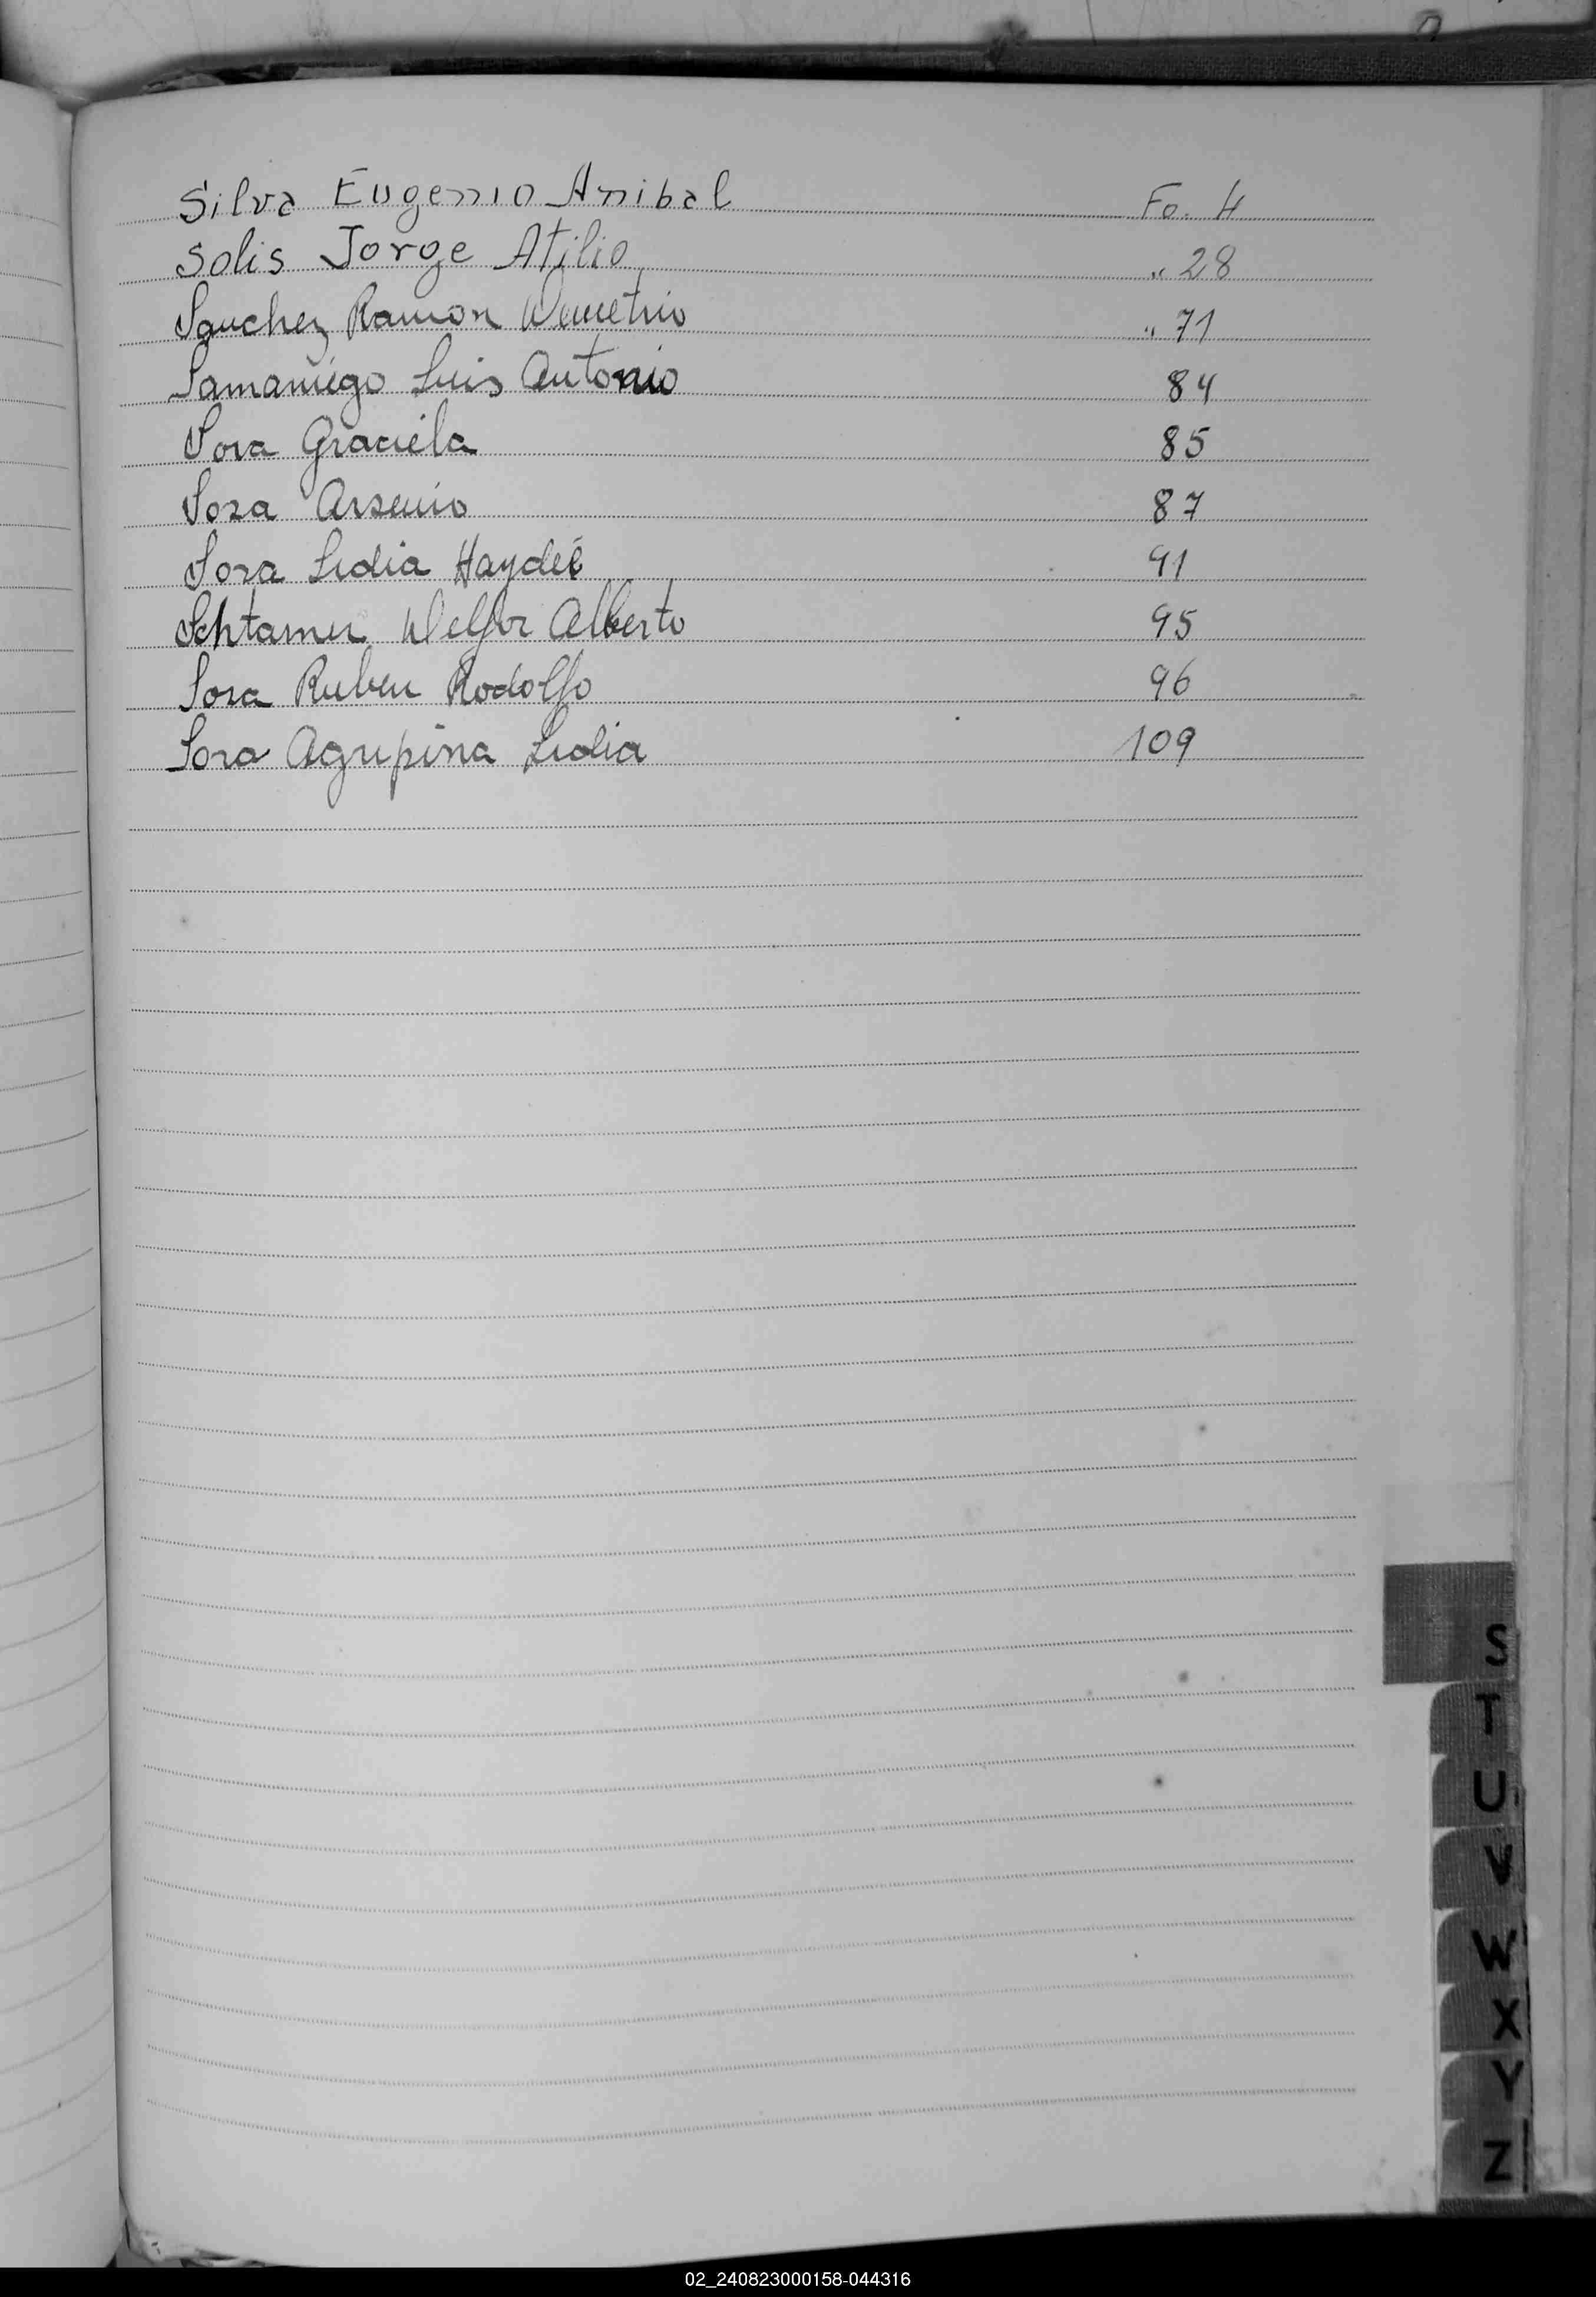 Silva Eugenio Anibal Fo. 4
Solis Jorge Atilio " 28
Sanchez Ramon Demetrio " 71
Samaniego Luis Antonio 84
Sosa Graciela 85
Sosa Arsenio 87
Sosa Lidia Haydeé 91
Schtamer Delfor Alberto 95
Sosa Ruben Rodolfo 96
Sosa Agripina Lidia 109
S
T
U
V
W
X
Y
Z
02_240823000158-044316